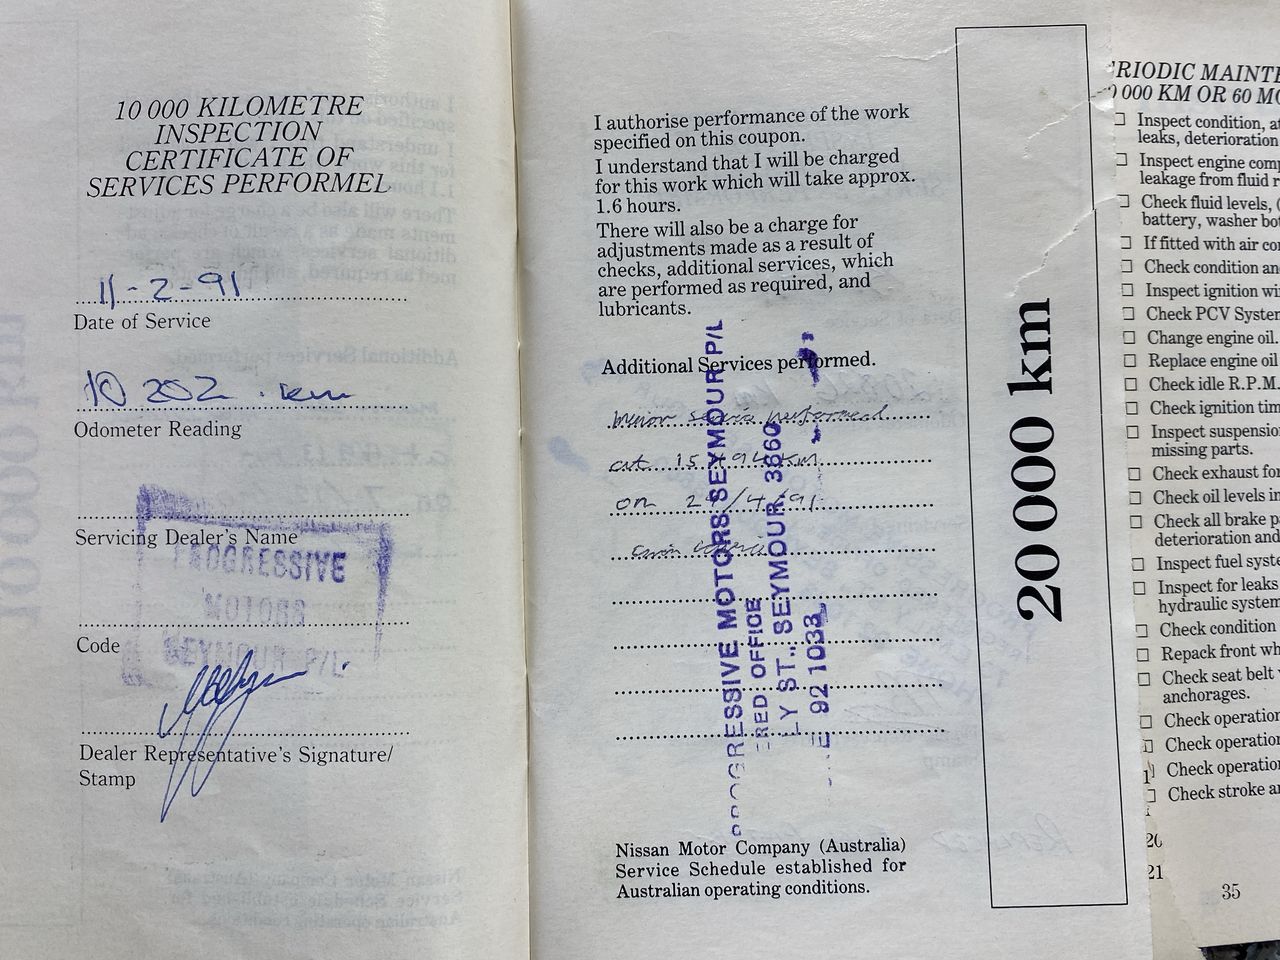 10 000 KILOMETRE
INSPECTION
CERTIFICATE OF
SERVICES PERFORMED
11-2-91
Date of Service
10 202 . km
Odometer Reading
Servicing Dealer's Name
PROGRESSIVE
MOTORS
SEYMOUR P/L
Code
Dealer Representative's Signature/
Stamp
I authorise performance of the work
specified on this coupon.
I understand that I will be charged
for this work which will take approx.
1.6 hours.
There will also be a charge for
adjustments made as a result of
checks, additional services, which
are performed as required, and
lubricants.
Additional Services performed.
minor service performed
at 15 94 km
on 2 /4/91
PROGRESSIVE MOTORS SEYMOUR P/L
ERED OFFICE
LY ST., SEYMOUR 3660
E 92 1033
Nissan Motor Company (Australia)
Service Schedule established for
Australian operating conditions.
20 000 km
RIODIC MAINTE
0 000 KM OR 60 MO
Inspect condition, at
leaks, deterioration
Inspect engine comp
leakage from fluid r
Check fluid levels, (
battery, washer bot
If fitted with air con
Check condition and
Inspect ignition wir
Check PCV System
Change engine oil.
Replace engine oil
Check idle R.P.M.
Check ignition tim
Inspect suspension
missing parts.
Check exhaust for
Check oil levels in
Check all brake p
deterioration and
Inspect fuel syste
Inspect for leaks
hydraulic system
Check condition
Repack front wh
Check seat belt
anchorages.
Check operation
Check operation
Check operation
Check stroke an
20
21
35